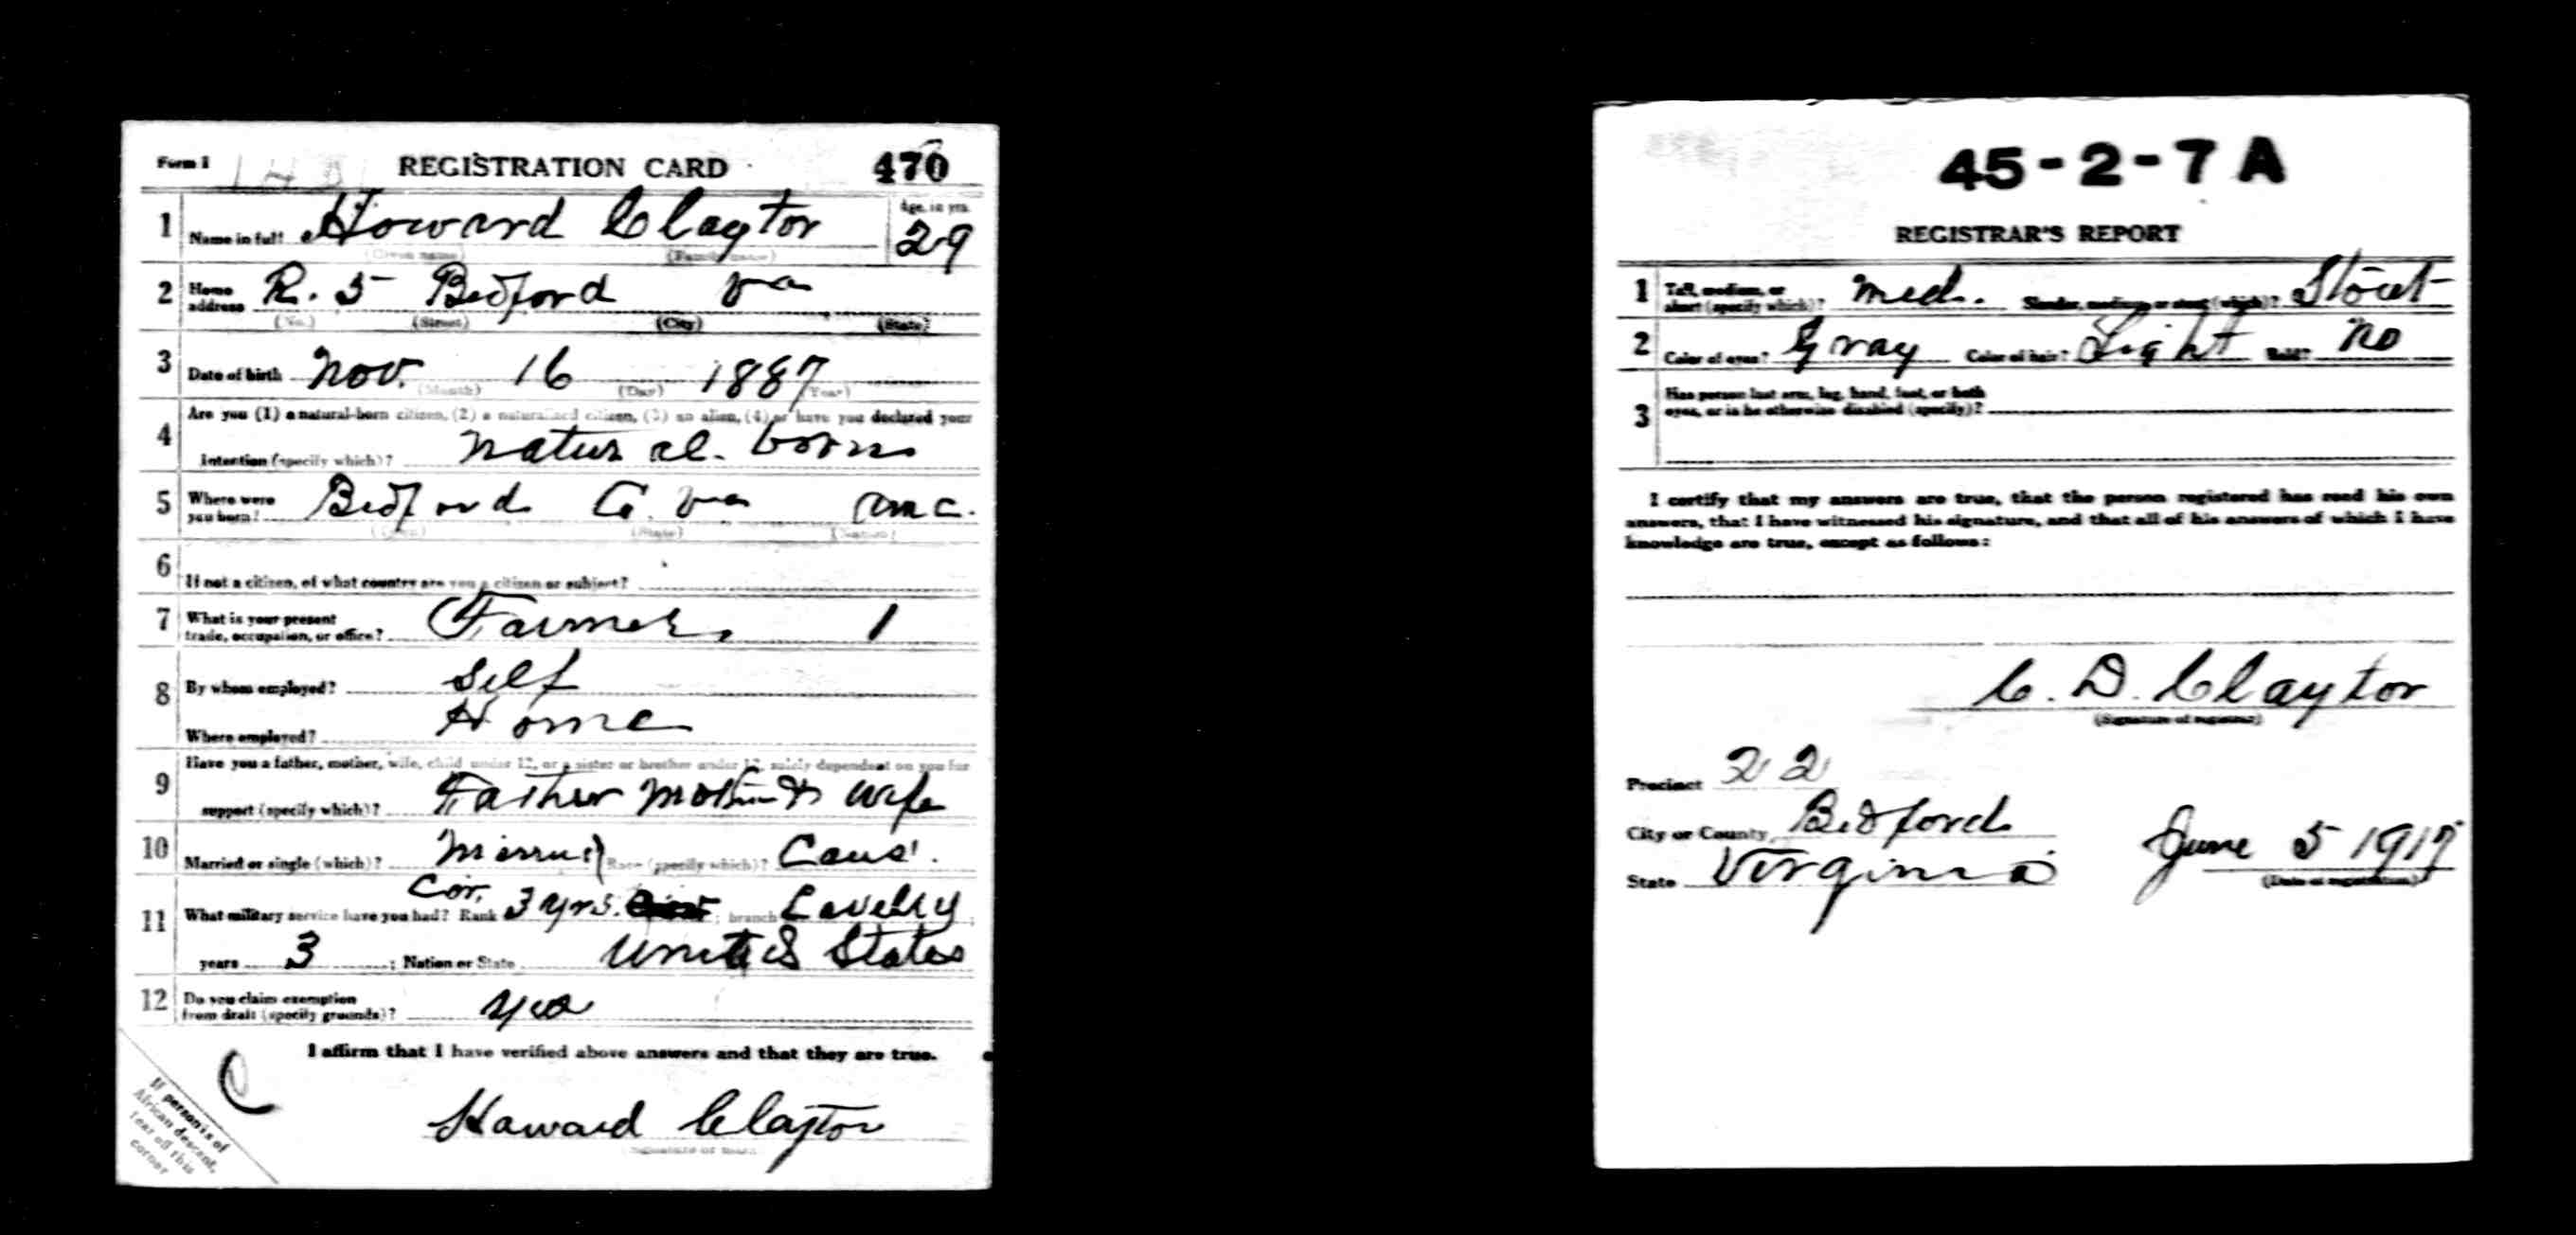 Form 1 REGISTRATION CARD 470
1 Name in full Howard Claytor Age, in yrs. 29
(Given name) (Family name)
2 Home address R. 5 Bedford Va
(No.) (Street) (City) (State)
3 Date of birth Nov. 16 1887
(Month) (Day) (Year)
Are you (1) a natural-born citizen, (2) a naturalized citizen, (3) an alien, (4) or have you declared your
4 intention (specify which)? Natural. born
5 Where were you born? Bedford Co. Va Amc.
(Town) (State) (Nation)
6 If not a citizen, of what country are you a citizen or subject?
7 What is your present
trade, occupation, or office? Farmer 1
8 By whom employed? Self
Where employed? Home
Have you a father, mother, wife, child under 12, or a sister or brother under 12, solely dependent on you for
9 support (specify which)? Father Mother & wife
10 Married or single (which)? Race (specify which)? Caus.
Cor.
11 What military service have you had? Rank 3 yrs. ; branch Cavelry ;
years 3 ; Nation or State United States
12 Do you claim exemption
from draft (specify grounds)? yes
I affirm that I have verified above answers and that they are true.
Howard Claytor
If person is of
African descent,
tear off this
corner
45-2-7 A
REGISTRAR'S REPORT
1 Tall, medium, or
short (specify which)? Med. Slender, medium, or stout (which)? Stout
2 Color of eyes? Gray Color of hair? Light Bald? No
Has person lost arm, leg, hand, foot, or both
3 eyes, or is he otherwise disabled (specify)?
I certify that my answers are true, that the person registered has read his own
answers, that I have witnessed his signature, and that all of his answers of which I have
knowledge are true, except as follows:
C. D. Claytor
(Signature of registrar)
Precinct 22
City or County Bedford
State Virginia June 5 1917
(Date of registration)